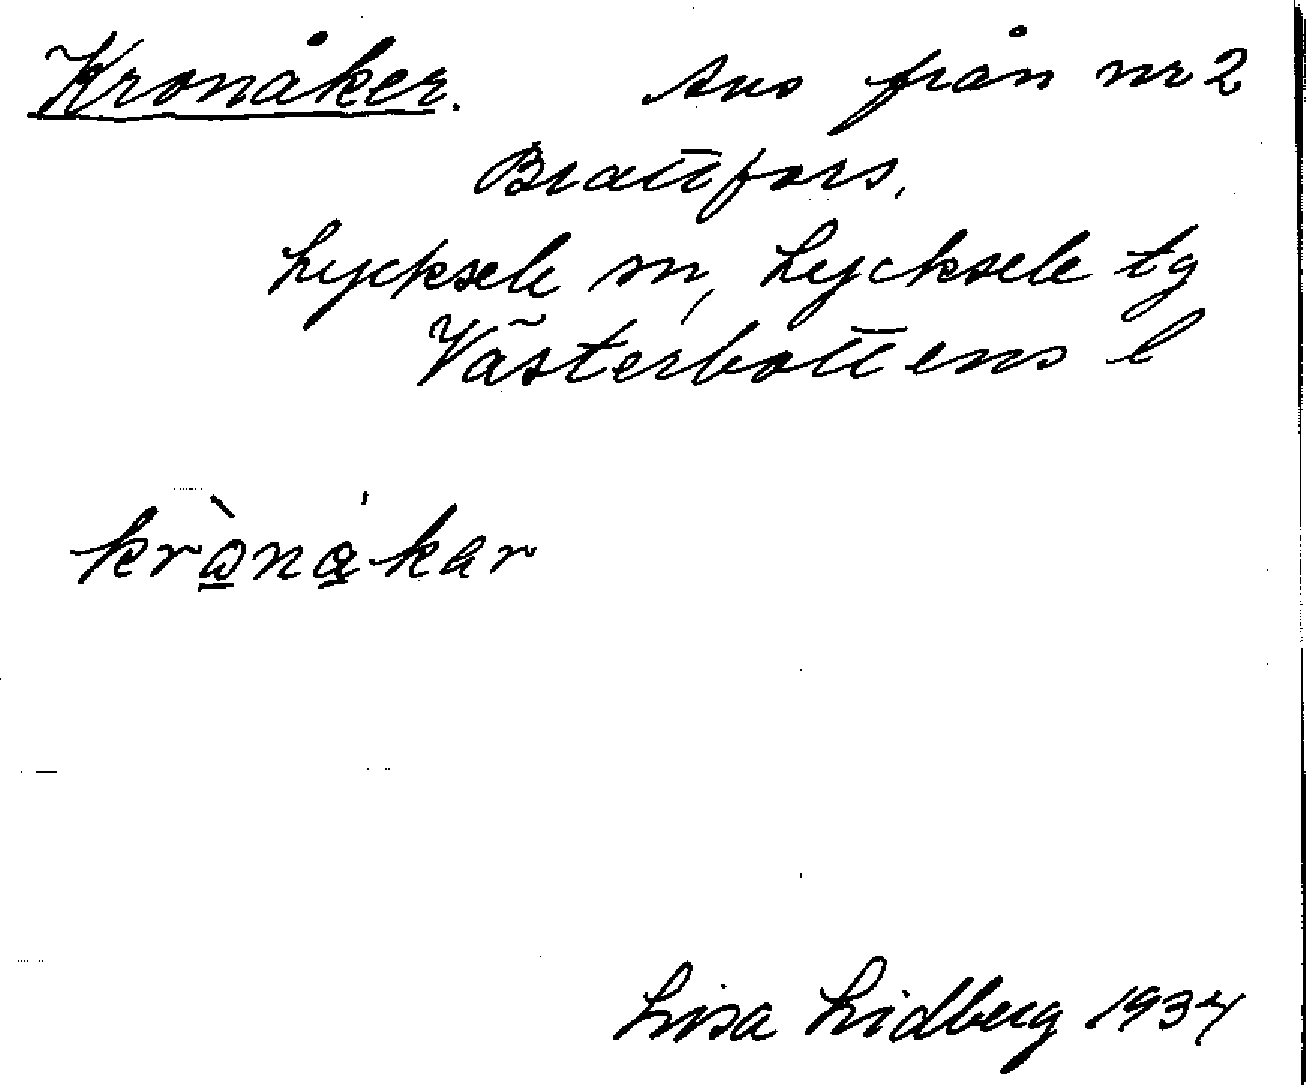 Kronåker. Avs från nr 2
Brattfors,
Lycksele sn, Lycksele tg
Västerbottens l
krònákar
Lisa Lidberg 1934